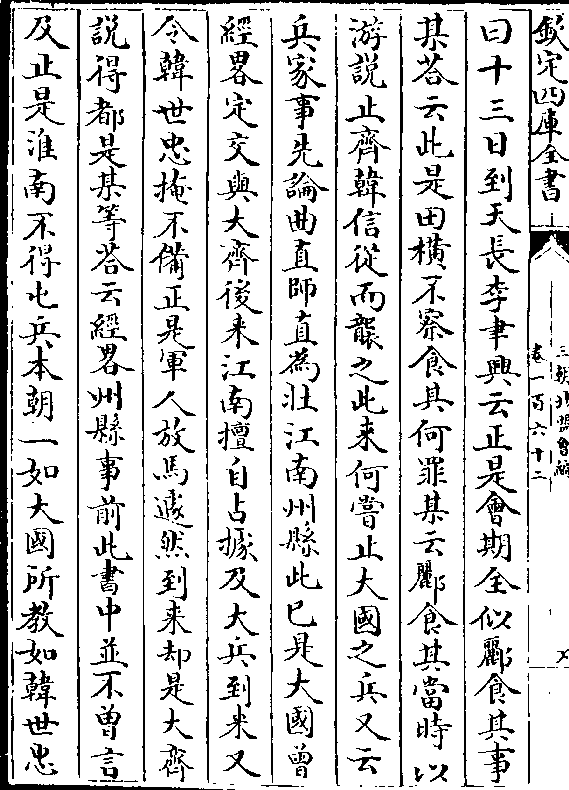 欽定四庫全書
三朝北盟會編
卷一百六十二
曰十三日到天長李聿興云正是會期全似酈食其事
某荅云此是田橫不察食其何罪某云酈食其當時以
游說止齊韓信從而襲之此来何嘗止大國之兵又云
兵家事先論曲直師直為壯江南州縣此已是大國曾
經畧定交與大齊後来江南擅自占據及大兵到来又
令韓世忠掩不備正是軍人放馬遽然到来却是大齊
說得都是某等荅云經畧州縣事前此書中並不曾言
及止是淮南不得屯兵本朝一如大國所教如韓世忠